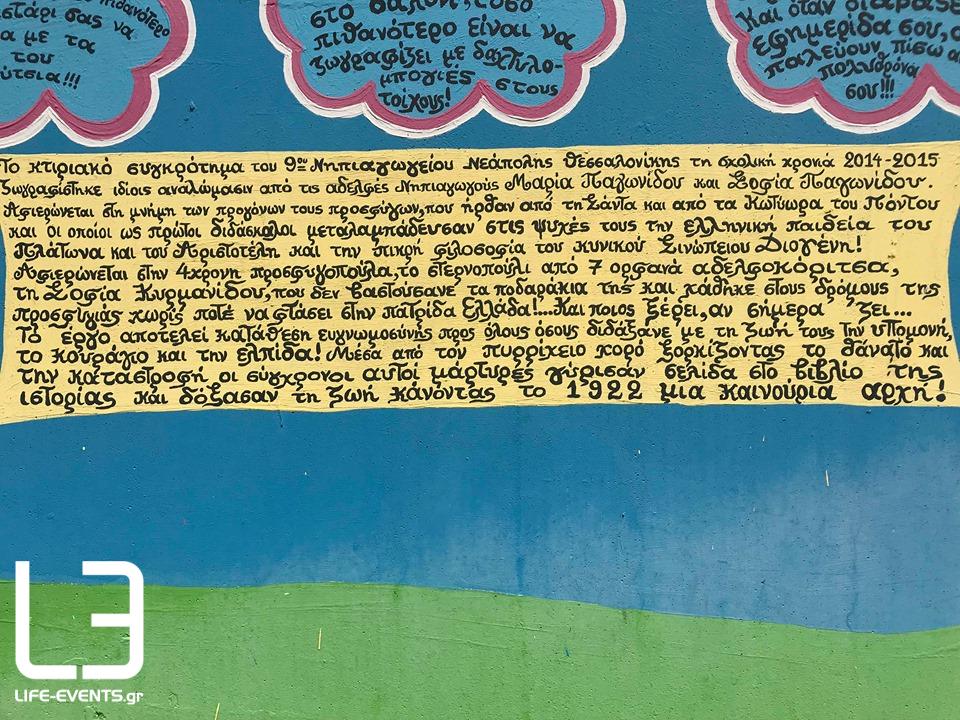 πιθανότερο
στάρι σας να
α με τα
του
ύτσια!!!
στο σαλόνι, τόσο
πιθανότερο είναι να
ζωγραφίζει με δαχτυλο-
μπογιές στους
τοίχους!
Και όταν διαβάσε
εφημερίδα σου, α
παλεύουν πίσω α
πολυθρόνα
σου!!!
Το κτιριακό συγκρότημα του 9ου Νηπιαγωγείου Νεάπολης Θεσσαλονίκης τη σχολική χρονιά 2014-2015
ζωγραφίστηκε ιδίοις αναλώμασιν από τις αδελφές Νηπιαγωγούς Μαρία Παγωνίδου και Σοφία Παγωνίδου.
Αφιερώνεται στη μνήμη των προγόνων τους προσφύγων, που ήρθαν από τη Σάντα και από τα Κοτύωρα του Πόντου
και οι οποίοι ως πρώτοι διδάσκαλοι μεταλαμπάδευσαν στις ψυχές τους την ελληνική παιδεία του
Πλάτωνα και του Αριστοτέλη και την πικρή φιλοσοφία του κυνικού Σινωπείου Διογένη!
Αφιερώνεται στην 4χρονη προσφυγοπούλα, το στερνοπούλι από 7 ορφανά αδελφοκόριτσα,
τη Σοφία Κυρμανίδου, που δεν βαστούσανε τα ποδαράκια της και χάθηκε στους δρόμους της
προσφυγιάς χωρίς ποτέ να φτάσει στην πατρίδα Ελλάδα!....Και ποιος ξέρει, αν σήμερα ζει...
Το έργο αποτελεί κατάθεση ευγνωμοσύνης προς όλους όσους διδάξανε με τη ζωή τους την υπομονή,
το κουράγιο και την ελπίδα! Μέσα από τον πυρρίχειο χορό ξορκίζοντας το θάνατο και
την καταστροφή οι σύγχρονοι αυτοί μάρτυρες γύρισαν σελίδα στο βιβλίο της
ιστορίας και δόξασαν τη ζωή κάνοντας το 1922 μια καινούρια αρχή!
LIFE-EVENTS.gr